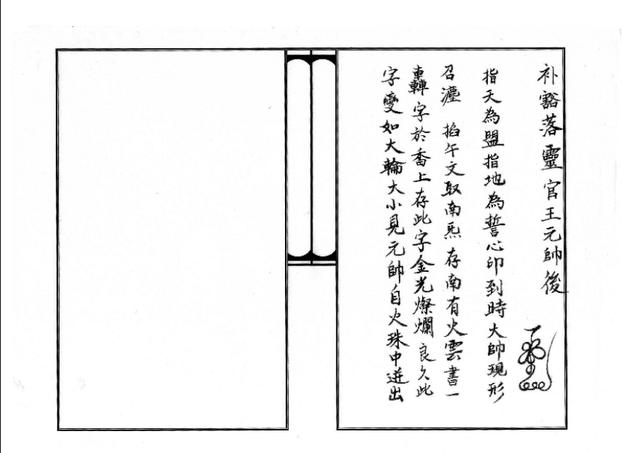 补豁落靈官王元帥後
指天為盟指地為誓心印到時大帥現形
召瀍 掐午文取南炁 存南有火雲書一
轟字於香上存此字金光燦爛良久此
字變如大輪大小見元帥自火珠中迸出